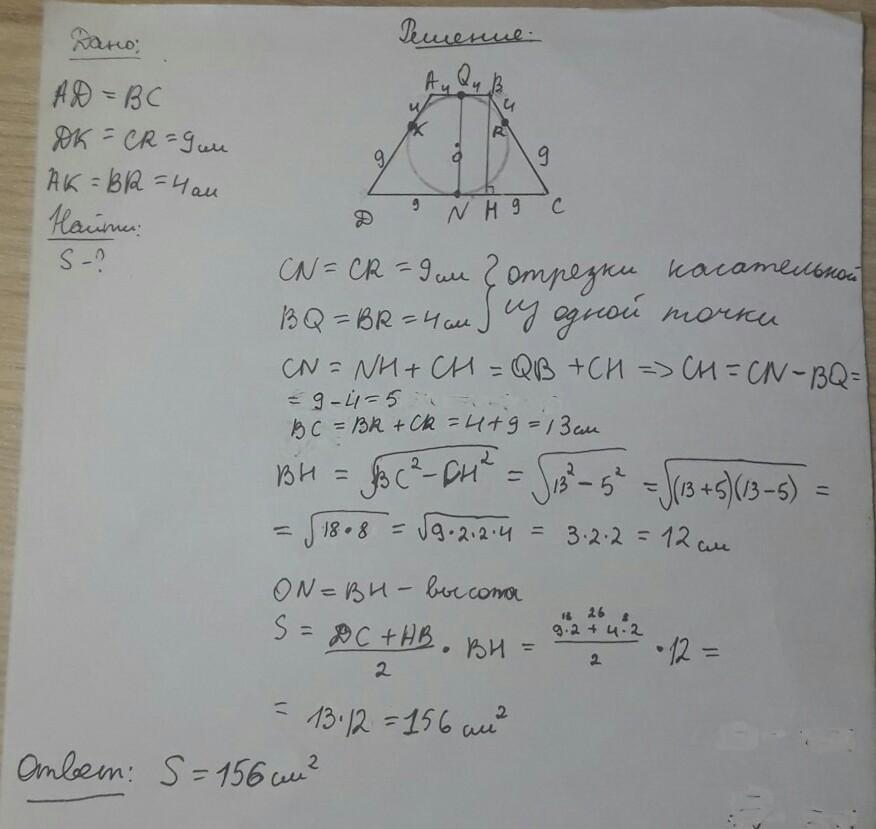 Дано:
AD = BC
DK = CR = 9 см
AK = BR = 4 см
Найти:
S - ?
Решение:
A 4 Q 4 B
4 4
K R
9 O 9
D 9 N H 9 C
CN = CR = 9 см } отрезки касательной
BQ = BR = 4 см } из одной точки
CN = NH + CH = QB + CH => CH = CN - BQ =
= 9 - 4 = 5
BC = BR + CR = 4 + 9 = 13 см
BH = √(BC² - CH²) = √(13² - 5²) = √((13+5)(13-5)) =
= √(18·8) = √(9·2·2·4) = 3·2·2 = 12 см
ON = BH - высота
18 26 8
S = (DC + AB)/2 · BH = (9·2 + 4·2)/2 · 12 =
= 13·12 = 156 см²
Ответ: S = 156 см²